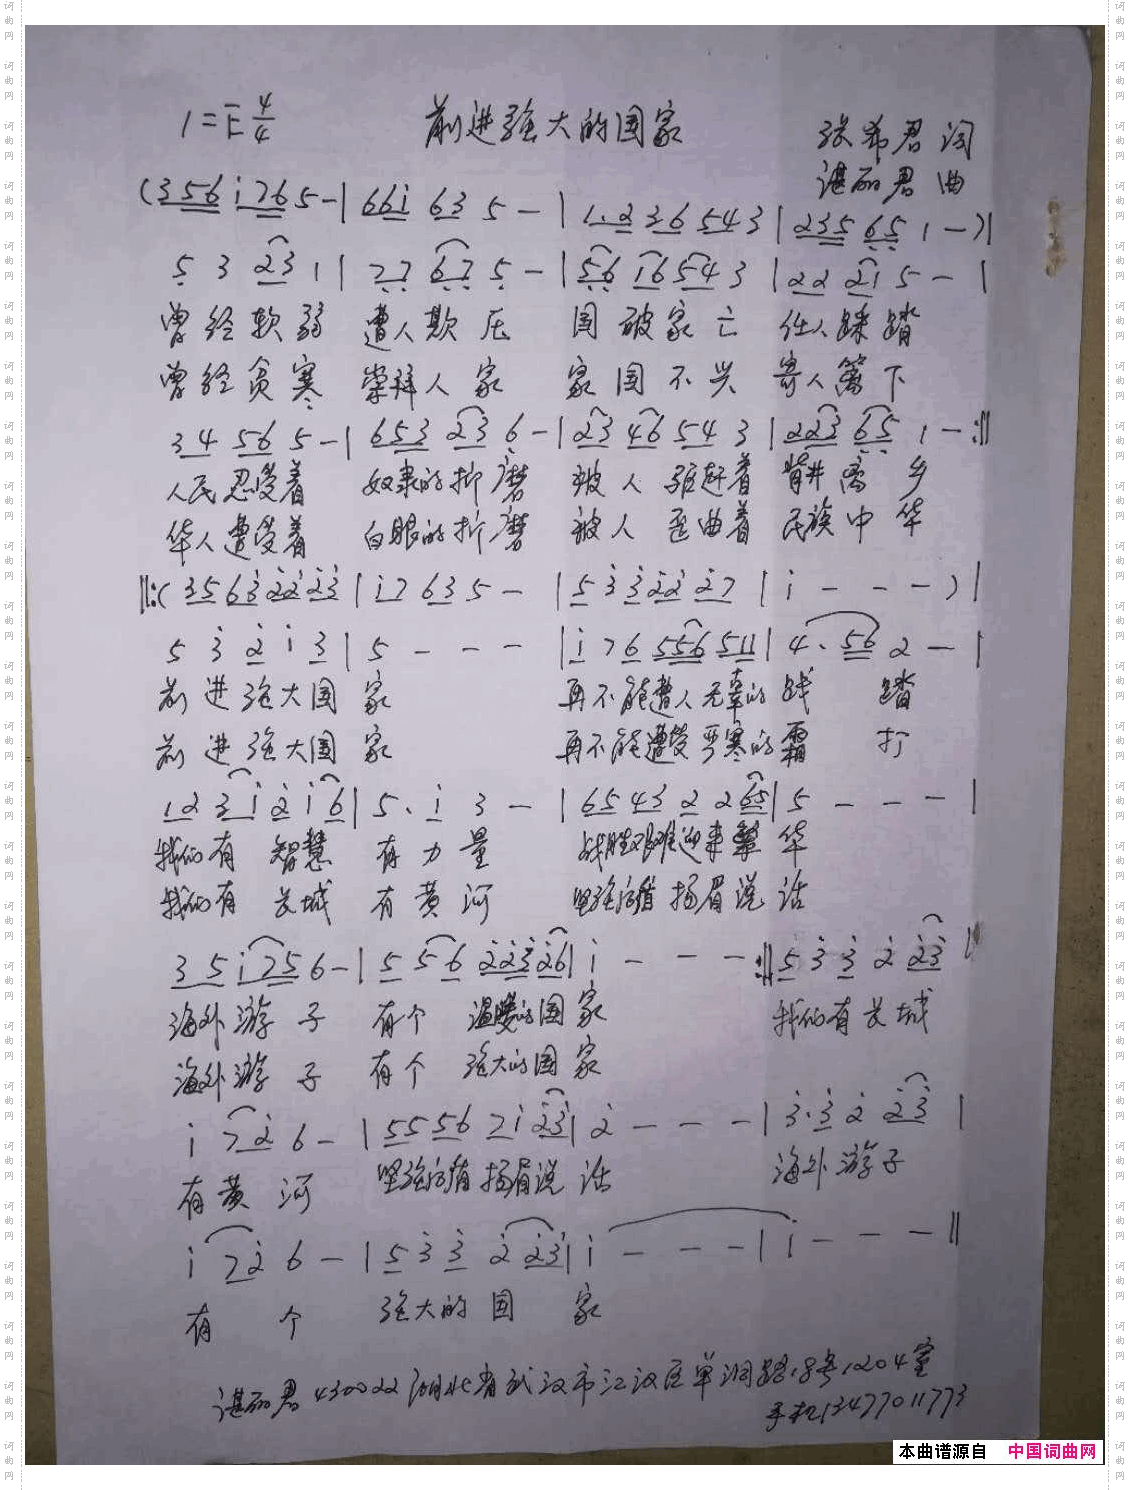 1=E 4/4 前进强大的国家 张希君 词
谌丽君 曲
(3 5 6 i 7 6 5 - | 6 6 i 6 3 5 - | 1. 2 3 6 5 4 3 | 2 3 5 6 5 1 - )|
5 3 2 3 1 | 7 7 6 7 5 - | 5 6 i 6 5 4 3 | 2 2 2 1 5 - |
曾经软弱 遭人欺压 国破家亡 任人踩踏
曾经贫寒 崇拜人家 家国不兴 寄人篱下
3 4 5 6 5 - | 6 5 3 2 3 6 - | 2 3 4 6 5 4 3 | 2 2 3 6 5 1 - :||
人民忍受着 奴隶的折磨 被人驱赶着 背井离乡
华人遭受着 白眼的折磨 被人歪曲着 民族中华
||:( 3 5 6 3 2 2 2 3 | i 7 6 3 5 - | 5 3 3 2 2 2 7 | i - - - ) |
5 3 2 i 3 | 5 - - - | i 7 6 5 5 6 5 1 1 | 4 . 5 6 2 - |
前进强大国家 再不能遭人无辜的战 踏
前进强大国家 再不能遭受严寒的霜 打
1 2 3 i 2 i 6 | 5 . i 3 - | 6 5 4 3 2 2 6 5 | 5 - - - |
我们有 智慧 有力量 战胜艰难迎来繁华
我们有 长城 有黄河 坚强 扬眉说话
3 5 i 7 5 6 - | 5 5 6 2 2 3 2 6 | i - - - :|| 5 3 3 2 2 3 |
海外游子 有个 温暖的国家 我们有长城
海外游子 有个 强大的国家
i 7 2 6 - | 5 5 5 6 7 i 2 3 | 2 - - - | 3 . 3 2 2 3 |
有黄河 坚强 扬眉说话 海外游子
i 7 2 6 - | 5 3 3 2 2 3 | i - - - | i - - - ||
有 个 强大的国 家
谌丽君 430022 湖北省武汉市江汉区单洞路18号1204室
手机13477011773
本曲谱源自 中国词曲网